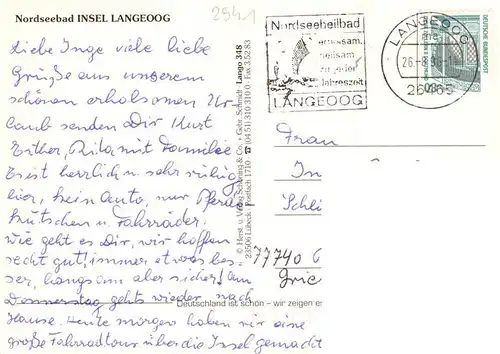 Nordseebad INSEL LANGEOOG
2941
Liebe Inge viele liebe
Grüße aus unserem
schönen erholsamen Ur-
laub senden Dir Kurt
Esther, Rita mit Familie
Es ist herrlich u. sehr ruhig
hier, kein Auto, nur Pferde
kutschen u. Fahrräder.
Wie geht es Dir, wir hoffen
recht gut! immer etwas bes-
ser, langsam aber sicher! Am
Donnerstag gehts wieder nach
Hause. Heute morgen haben wir eine
große Fahrradtour über die Insel gemacht
© Herst. u. Verlag Schöning & Co. · Gebr. Schmidt Lange 348
23506 Lübeck · Postfach 1710 · ☎ (04 51) 310 310 · Fax 3 52 83
Nordseeheilbad
gemeinsam
heilsam
zu jeder
Jahreszeit
LANGEOOG
LANGEOOG
26465
DEUTSCHE BUNDESPOST
Frau
In
Schli
77740
Grie
Deutschland ist schön – wir zeigen es